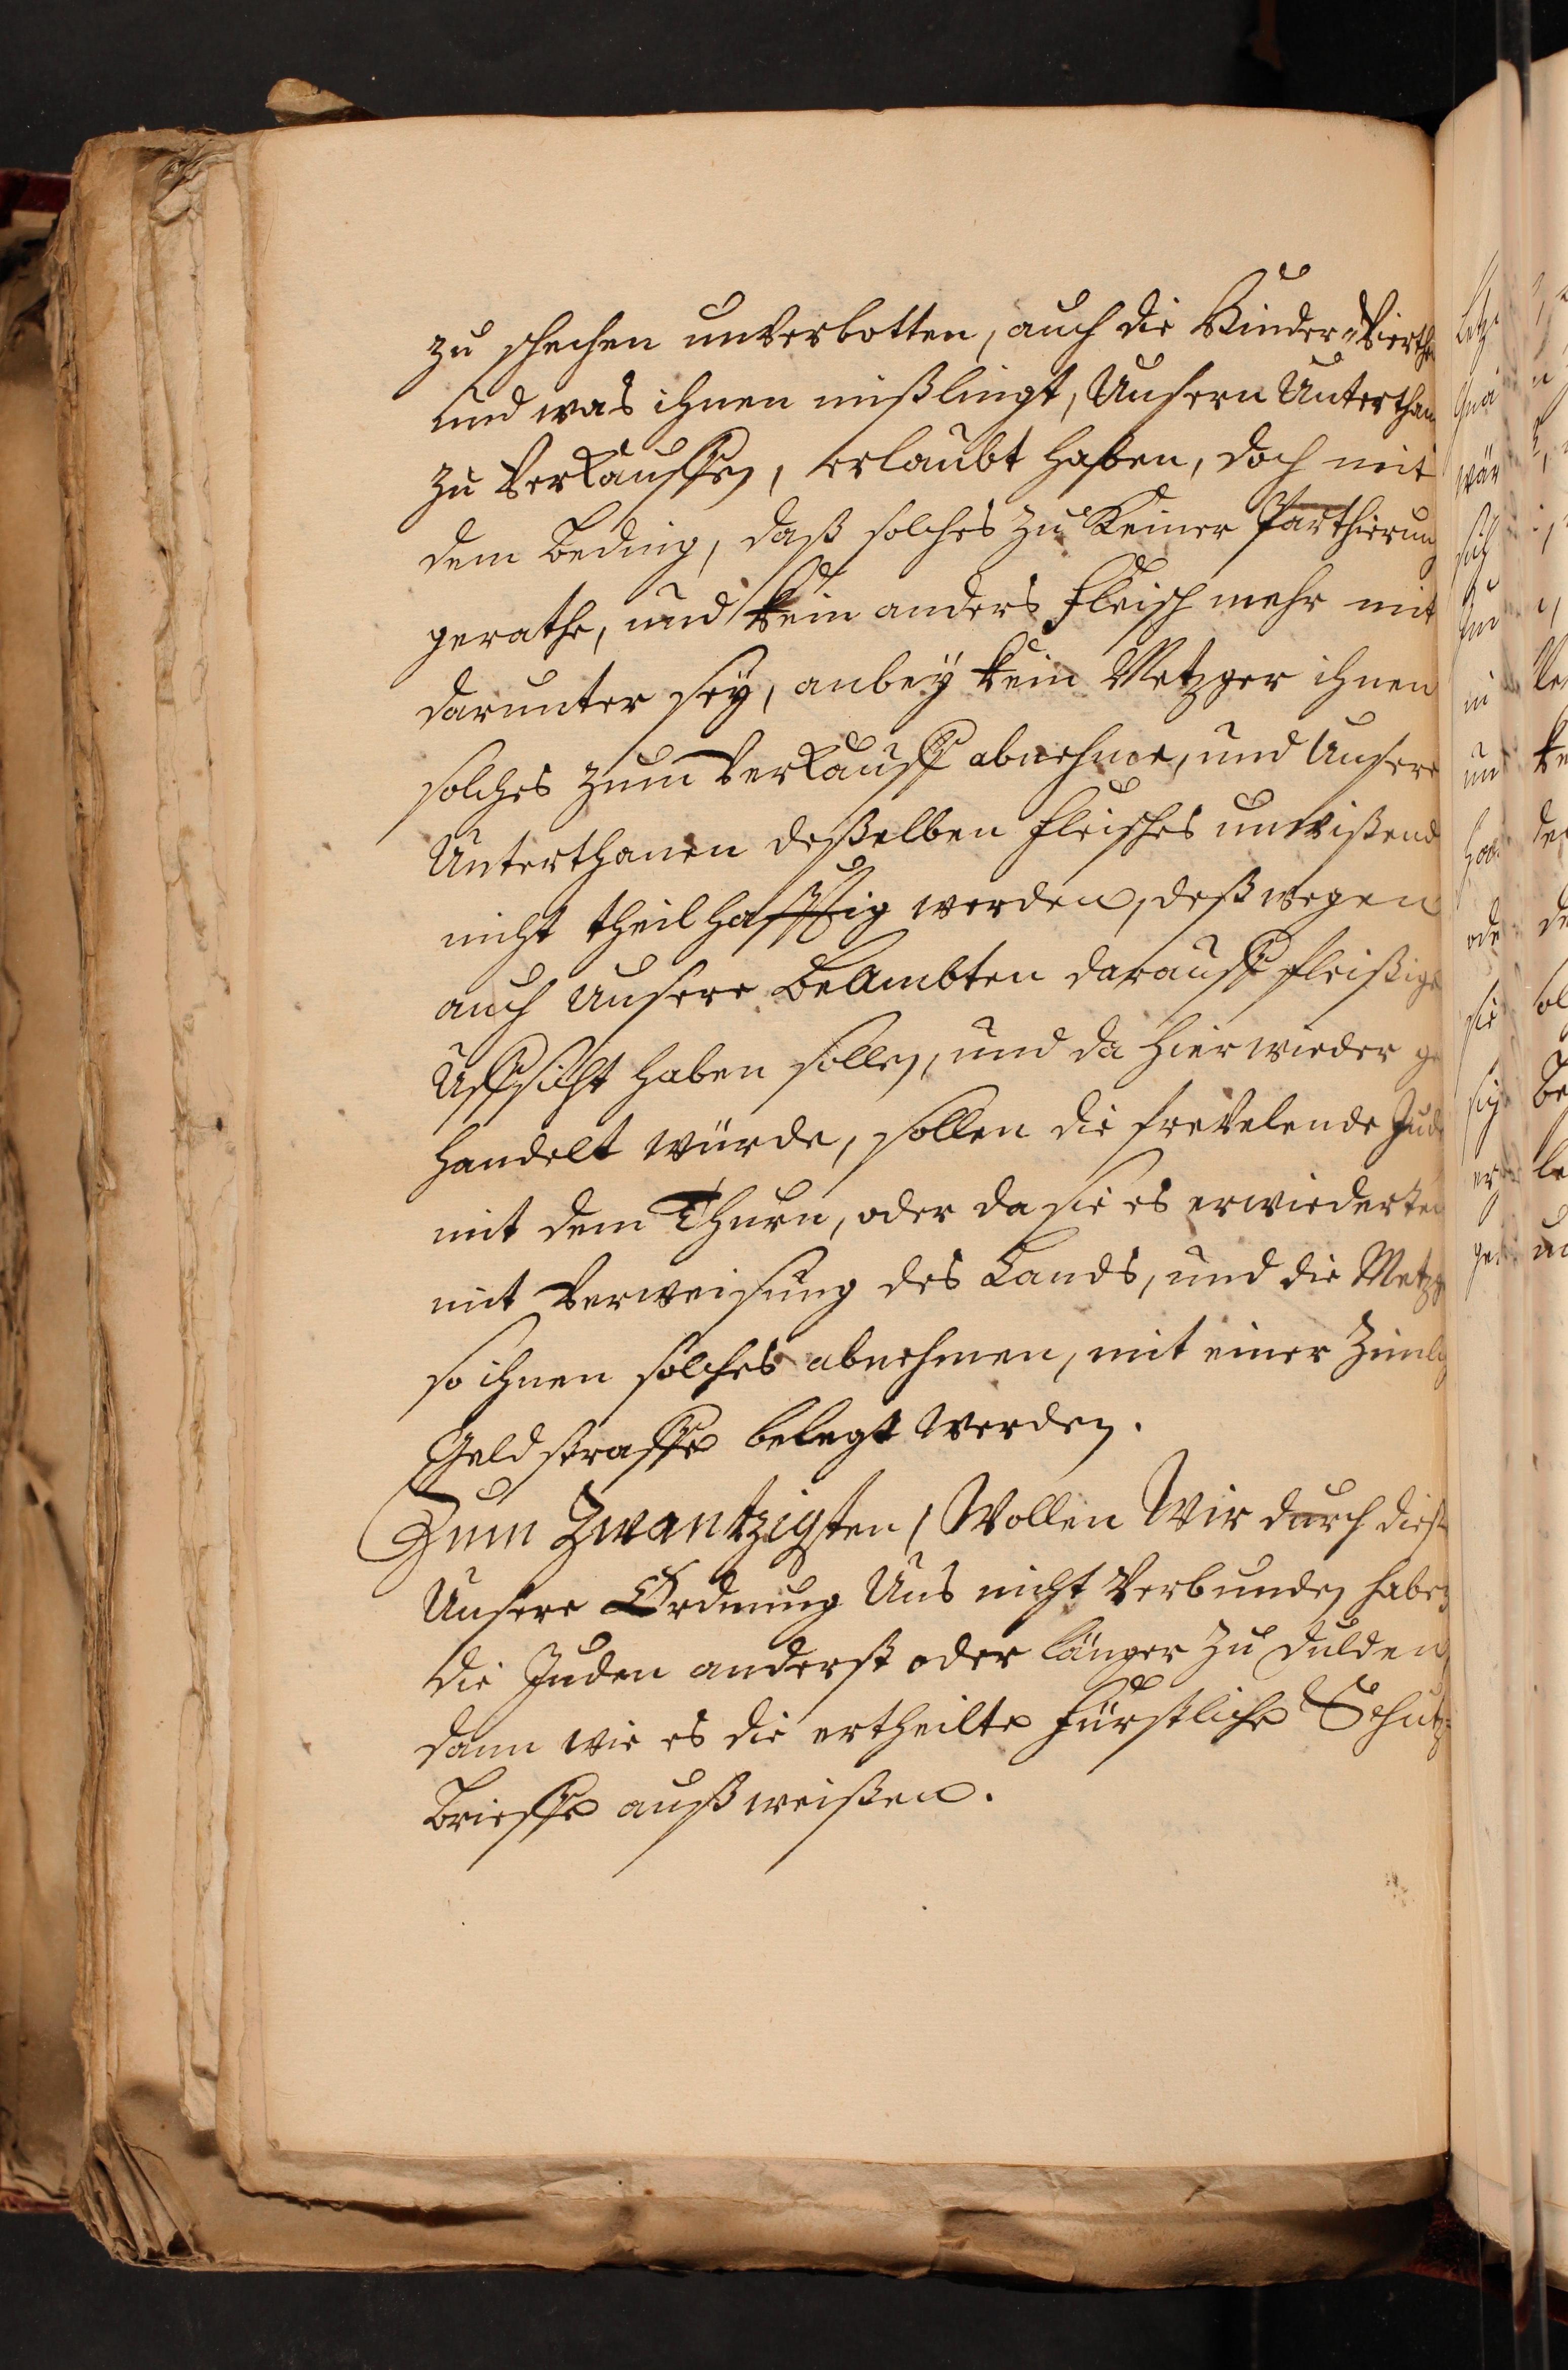 zu schechen unverbotten, auch die Hinder-Vierthe
und was ihnen mißlingt, Unsern Unterthan
zu Verkauffen, erlaubt haben, doch mit
dem beding, daß solches zu Keiner Parthierung
gerathe, und kein anders fleisch mehr mit
darunter sey, anbey kein Metzger ihnen
solches zum Verkauff abnehme, und Unsere
Unterthanen deßelben fleisches unwißend
nicht theilhafftig werden, deßwegen
auch Unsere Beambten darauff fleißige
Uffsicht haben sollen, und da hierwieder ge
handelt würde, sollen die frevelende Jud
mit dem Thurn, oder da sie es erwiederten
mit Verweisung des Lands, und die Metzge
so ihnen solches abnehmen, mit einer Zimlich
Geldstraffe belegt werden.
Zum Zwantzigsten, Wollen Wir durch diese
Unsere Ordnung Uns nicht Verbunden haben
die Juden anderst oder länger zu dulden,
dann wie es die ertheilte Fürstliche Schutz-
brieffe außweißen.